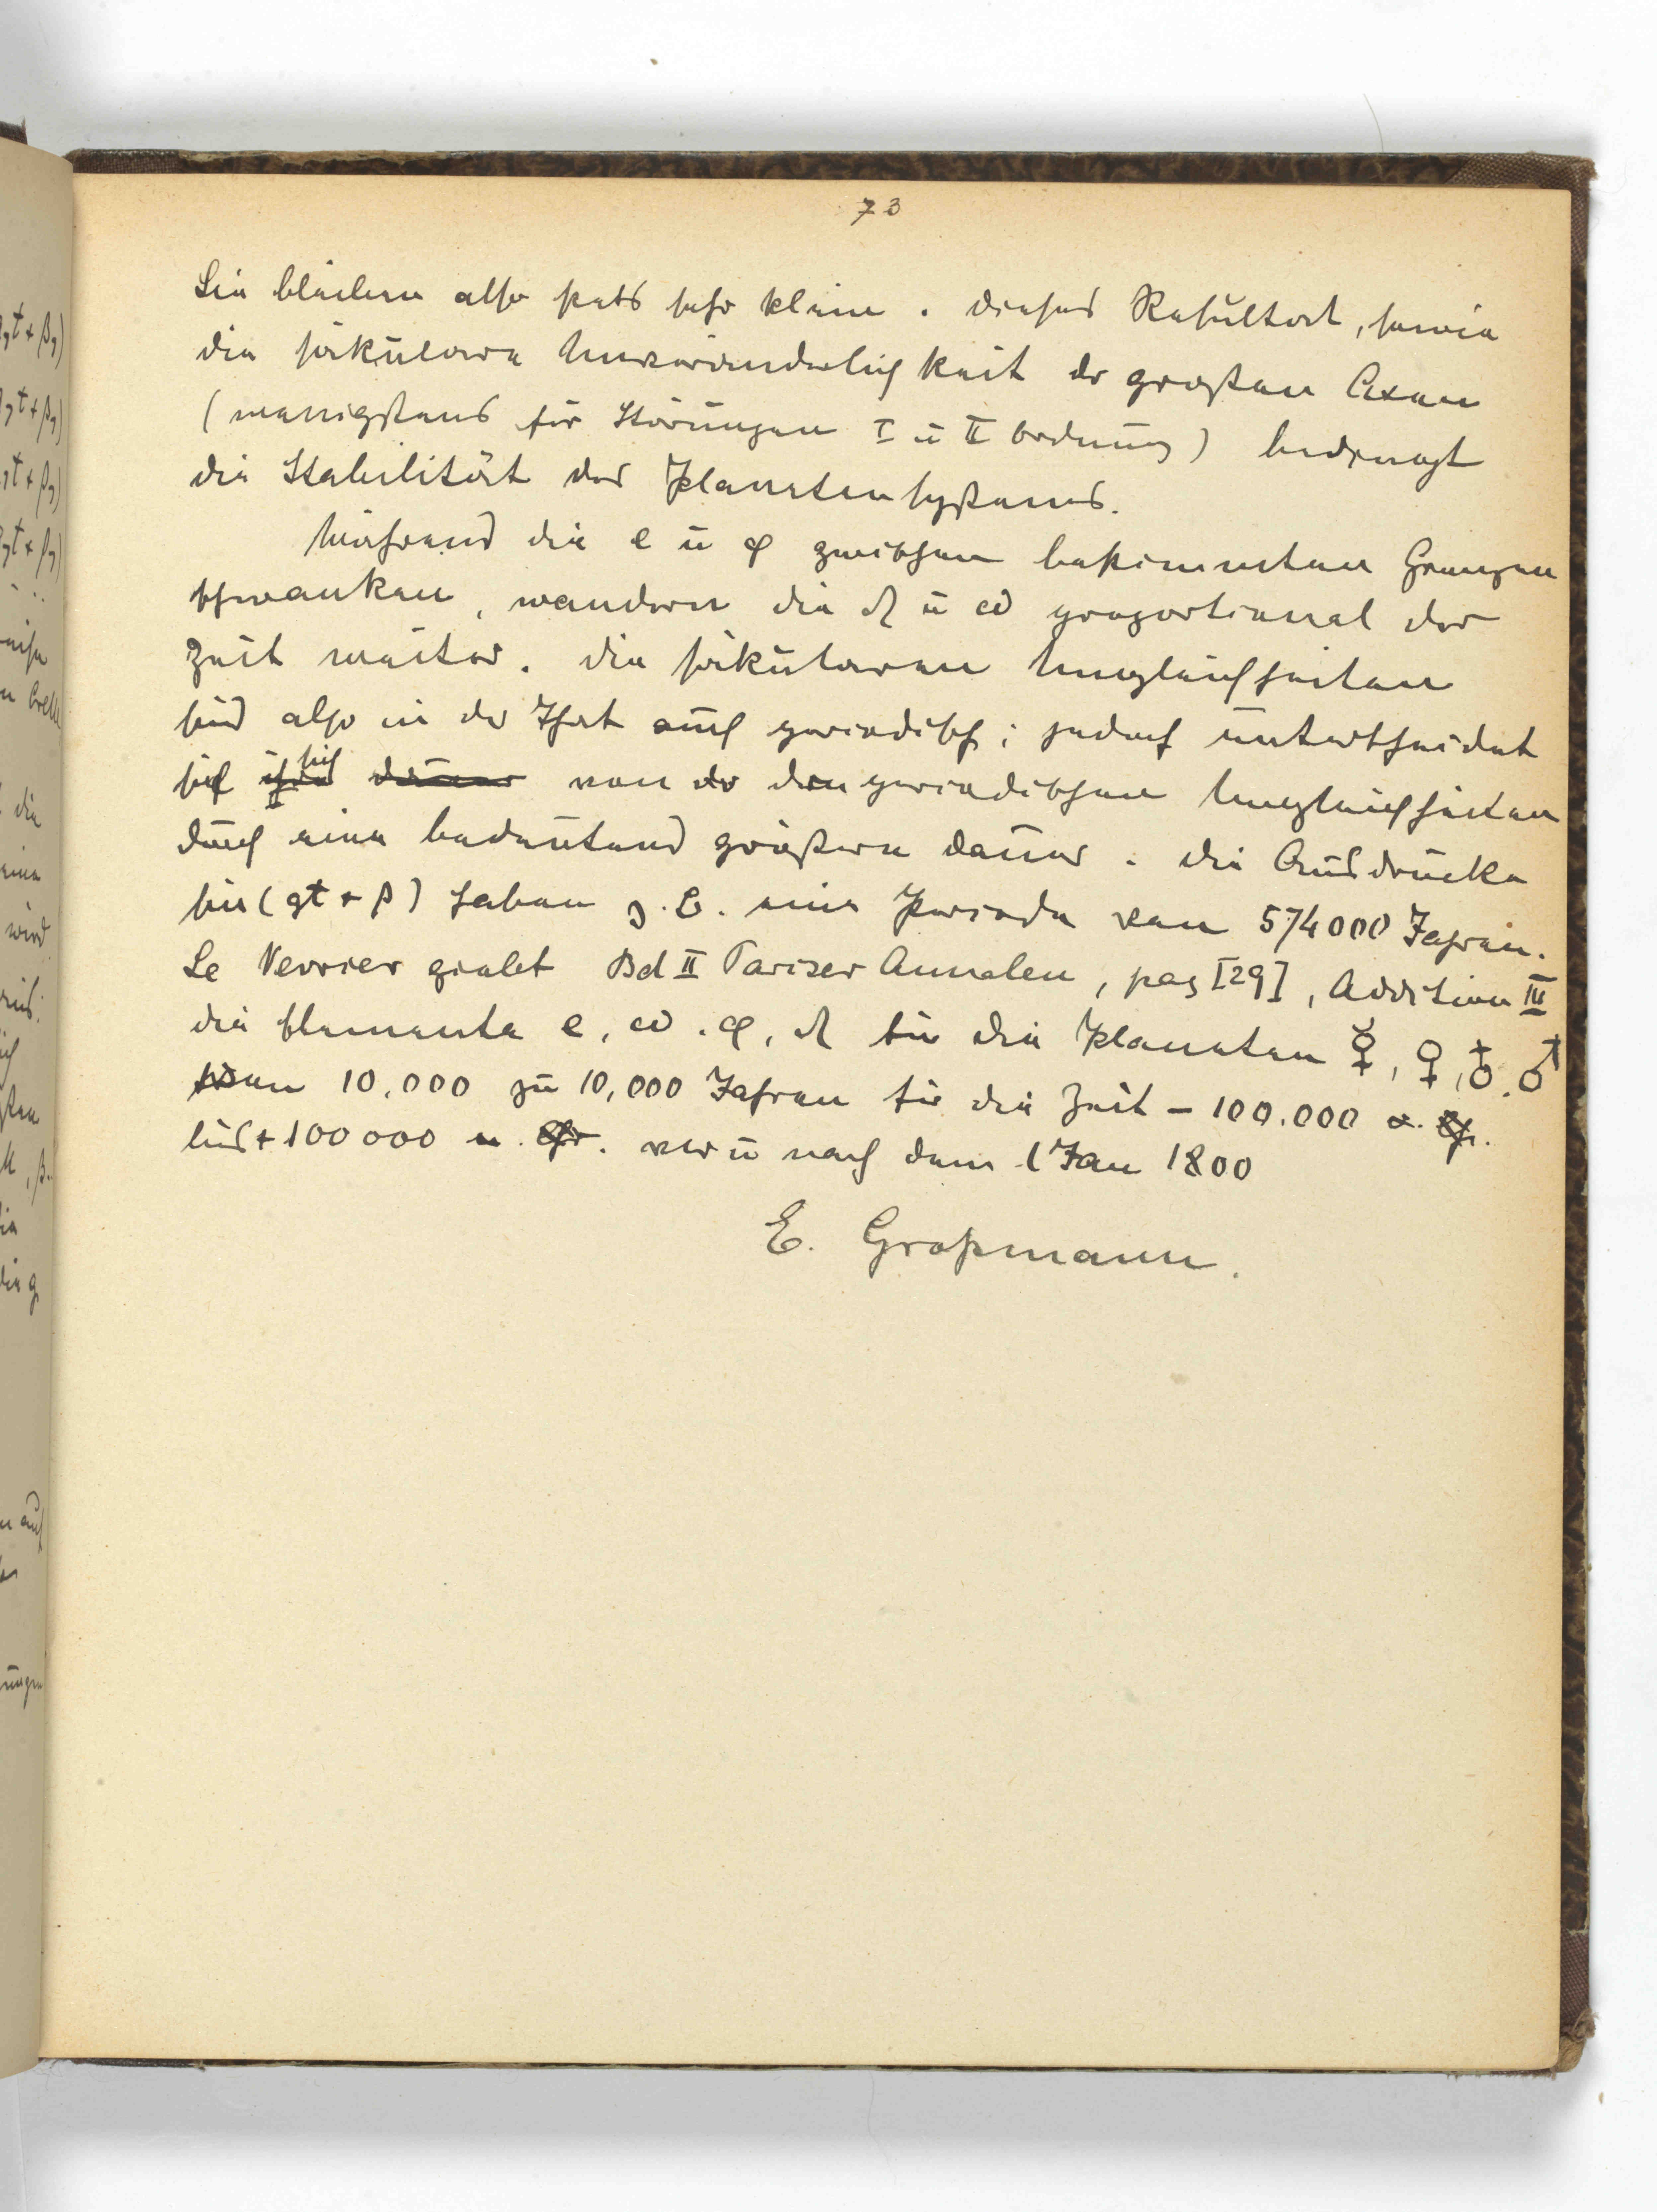 73
Sie bleiben also stets sehr klein. Dieses Resultat, sowie
die säkulare Unveränderlichkeit der großen Axen
(wenigstens für Störungen I u II Ordnung) bedingt
die Stabilität des Planetensystems.
Während die e u φ zwischen bestimmten Grenzen
schwanken, wandern die ☊ u ω proportional der
Zeit weiter. Die säkularen Ungleichheiten
sind also in der That auch periodisch; jedoch unterscheidet
sich ihre sich Dauer von der den periodischen Ungleichheiten
durch eine bedeutend größere Dauer. Die Ausdrücke
sin (gt + β) haben z. B. eine Periode von 574000 Jahren.
Le Verrier giebt Bd II Pariser Annalen, pag [29], Addition III
die Elemente e, ω. φ, ☊ für die Planeten ☿, ♀, ♁. ♂
von 10.000 zu 10,000 Jahren für die Zeit - 100.000
bis + 100000 vor u nach dem 1 Jan 1800
E. Großmann.
gt + β,)
gt + β,)
gt + β,)
gt + β,)
die
eine
wird